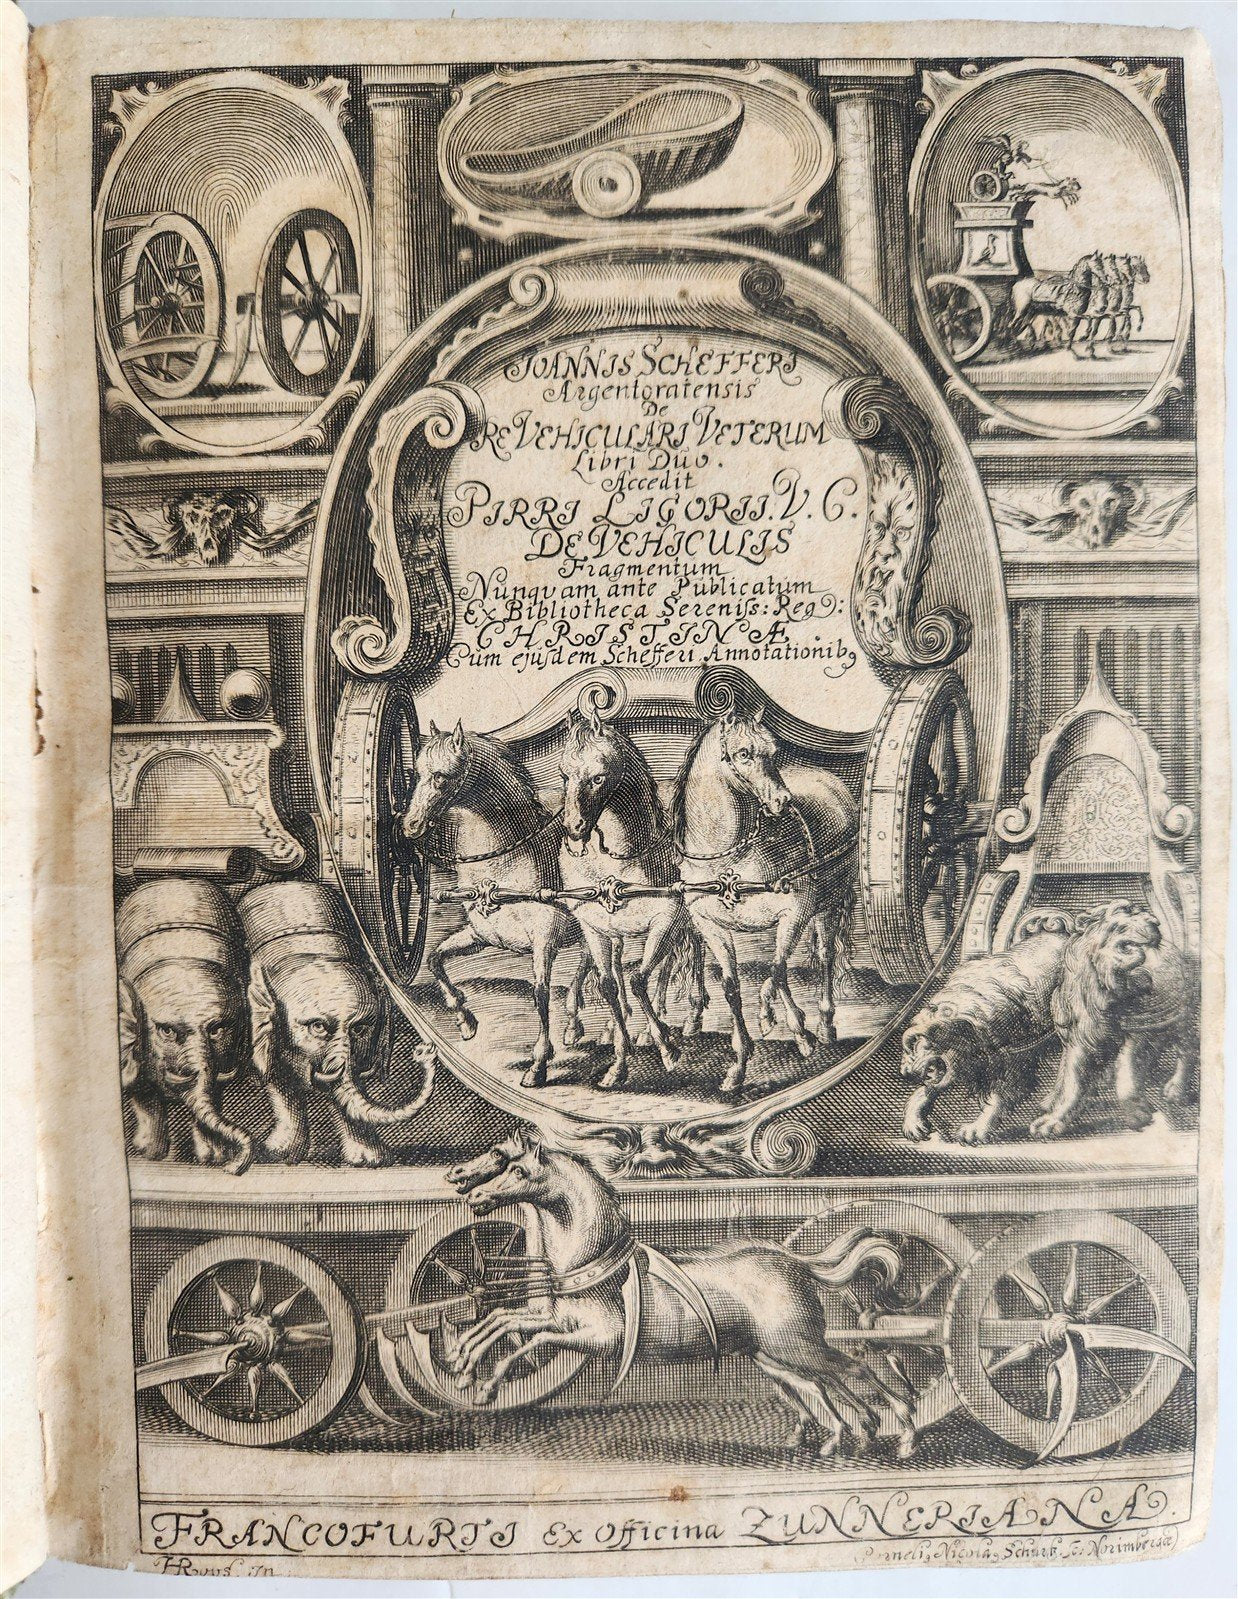 IOANNIS SCHEFFERI
Argentoratensis
De
RE VEHICULARI VETERUM
Libri Duo.
Accedit
PIRRI LIGORII. V. C.
DE VEHICULIS
Fragmentum
Nunquam ante Publicatum
Ex Bibliotheca Sereniss: Reg:
CHRISTINÆ
Cum ejusdem Schefferi Annotationibꝰ
FRANCOFURTI Ex Officina ZUNNERIANA.
in
Nicolaꝰ Schurtz Sc: Norimbergæ